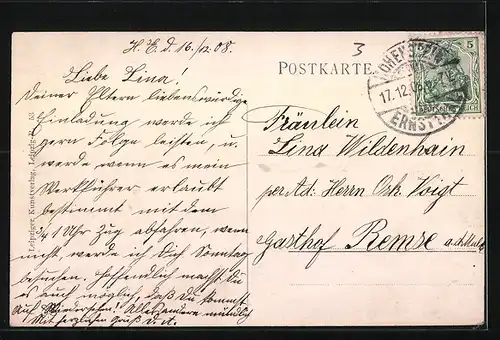 H. E. d. 16./12.08.
3
Liebe Lina!
Deiner Eltern liebenswürdige
Einladung werde ich
gern Folge leisten, u.
werde wenn es mein
Werkführer erlaubt
bestimmt mit dem
1 Uhr Zug abfahren, wenn
nicht, werde ich Dich Sonntag
besuchen. Hoffendlich machst Du
es auch möglich, daß Du kommst
Auf Wiedersehn! Alles andere mündlich
Mit herzlichen Gruß
POSTKARTE
HOHENSTEIN
17.12.08
ERNSTTHAL
5
Fräulein
Lina Wildenhain
per Ad: Herrn Osk. Voigt
Gasthof Remse
Leipziger Kunstverlag, Leipzig